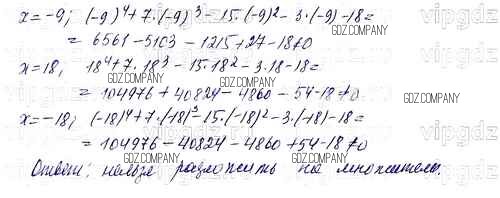 x=-9; (-9)⁴+7·(-9)³-15·(-9)²-3·(-9)-18=
= 6561-5103-1215+27-18≠0
x=18, 18⁴+7·18³-15·18²-3·18-18=
= 104976+40824-4860-54-18≠0
x=-18; (-18)⁴+7·(-18)³-15·(-18)²-3·(-18)-18=
= 104976-40824-4860+54-18≠0
Ответ: нельзя разложить на множители.
GDZ.COMPANY
GDZ.COMPANY
GDZ.COMPANY
GDZ.COMPANY
GDZ.COMPANY
GDZ.COMPANY
GDZ.COMPANY
vipgdz